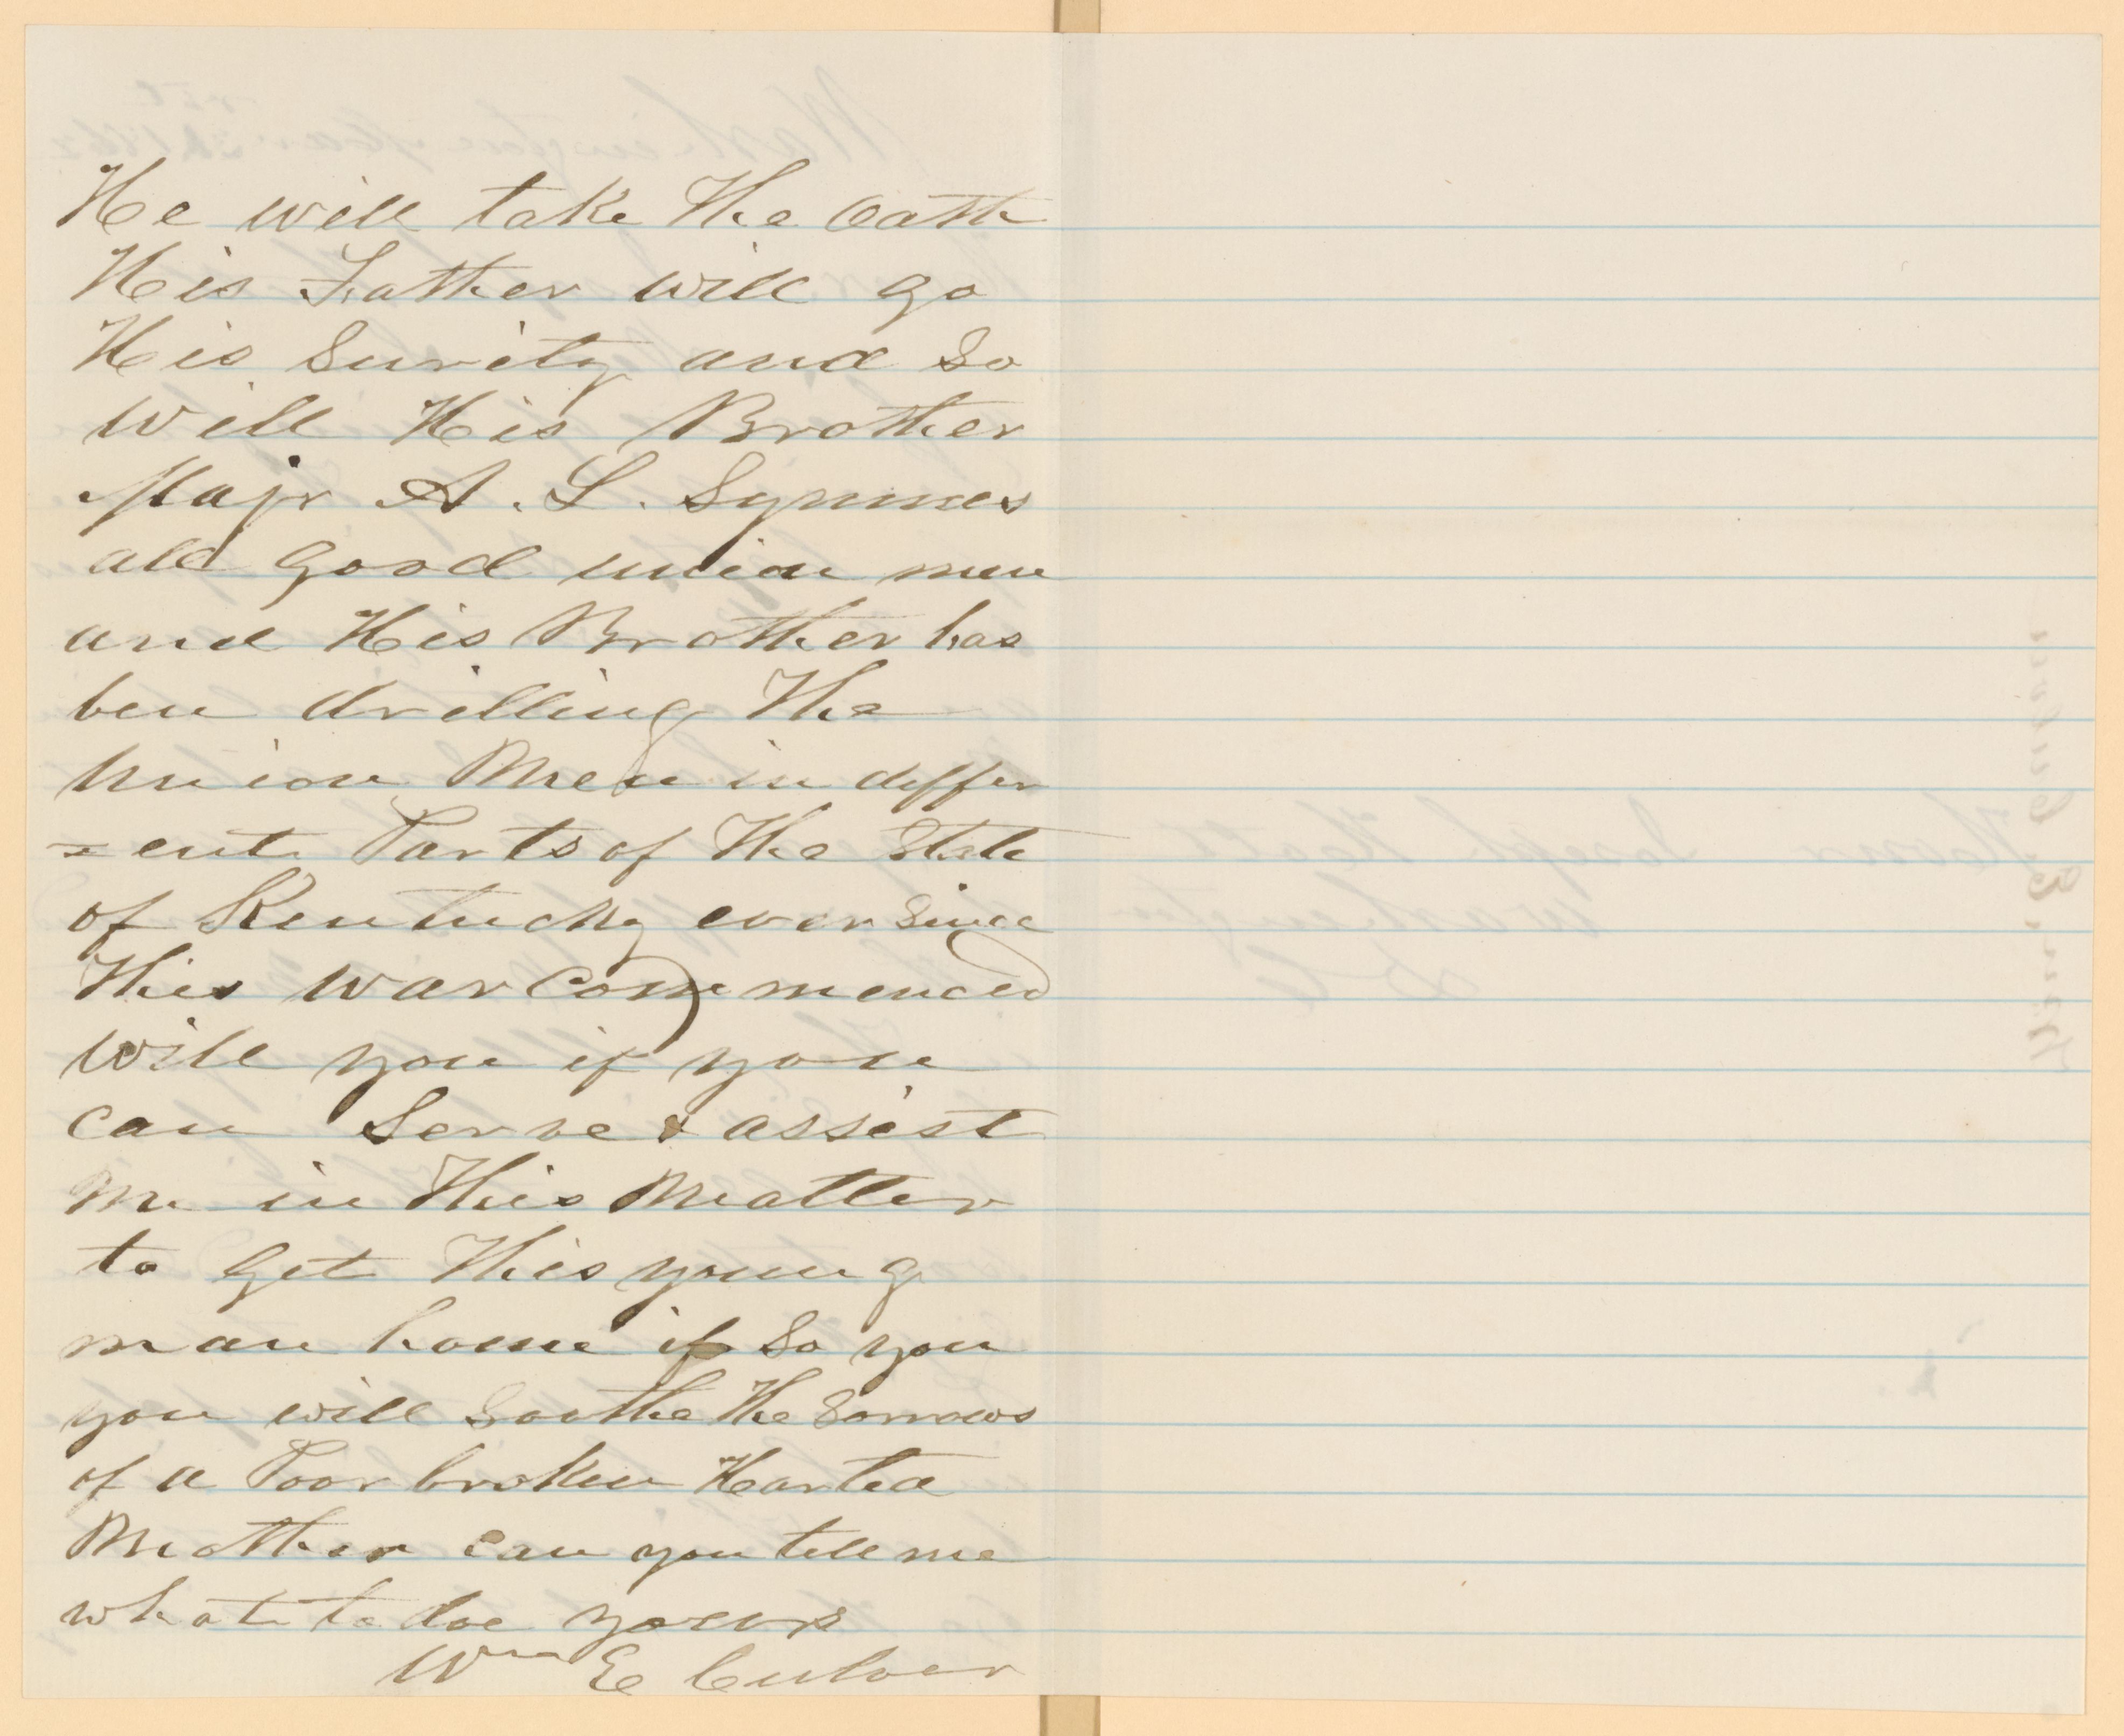 He will take the Oath
His Father will go
His Surity and So
will His Brother
Majr A. L. Symmes
all good union men
and His Brother has
ben drilling the
Union Men in differ
=ent Parts of the State
of Kentucky ever Since
this war commenced
will you if you
can Serve & assist
Me in this Matter
to get this young
man home if So you
you will Soothe the Sorrows
of a Poor broken Harted
Mother can you tell me
what to doe yours
Wm E Culver